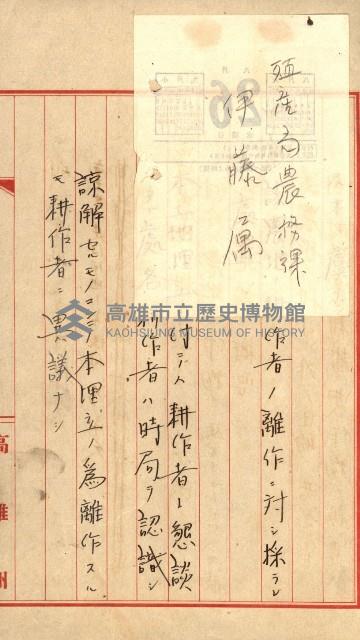 殖産局農務課
伊藤属
26
作者ノ離作ニ対シ採ラレ
時ニハ耕作者ト懇談
作者ハ時局ヲ認識シ
諒解セルモノニシテ本埋立ノ為離作スル
モ耕作者ニ異議ナシ
高雄市立歷史博物館
KAOHSIUNG MUSEUM OF HISTORY
高雄州